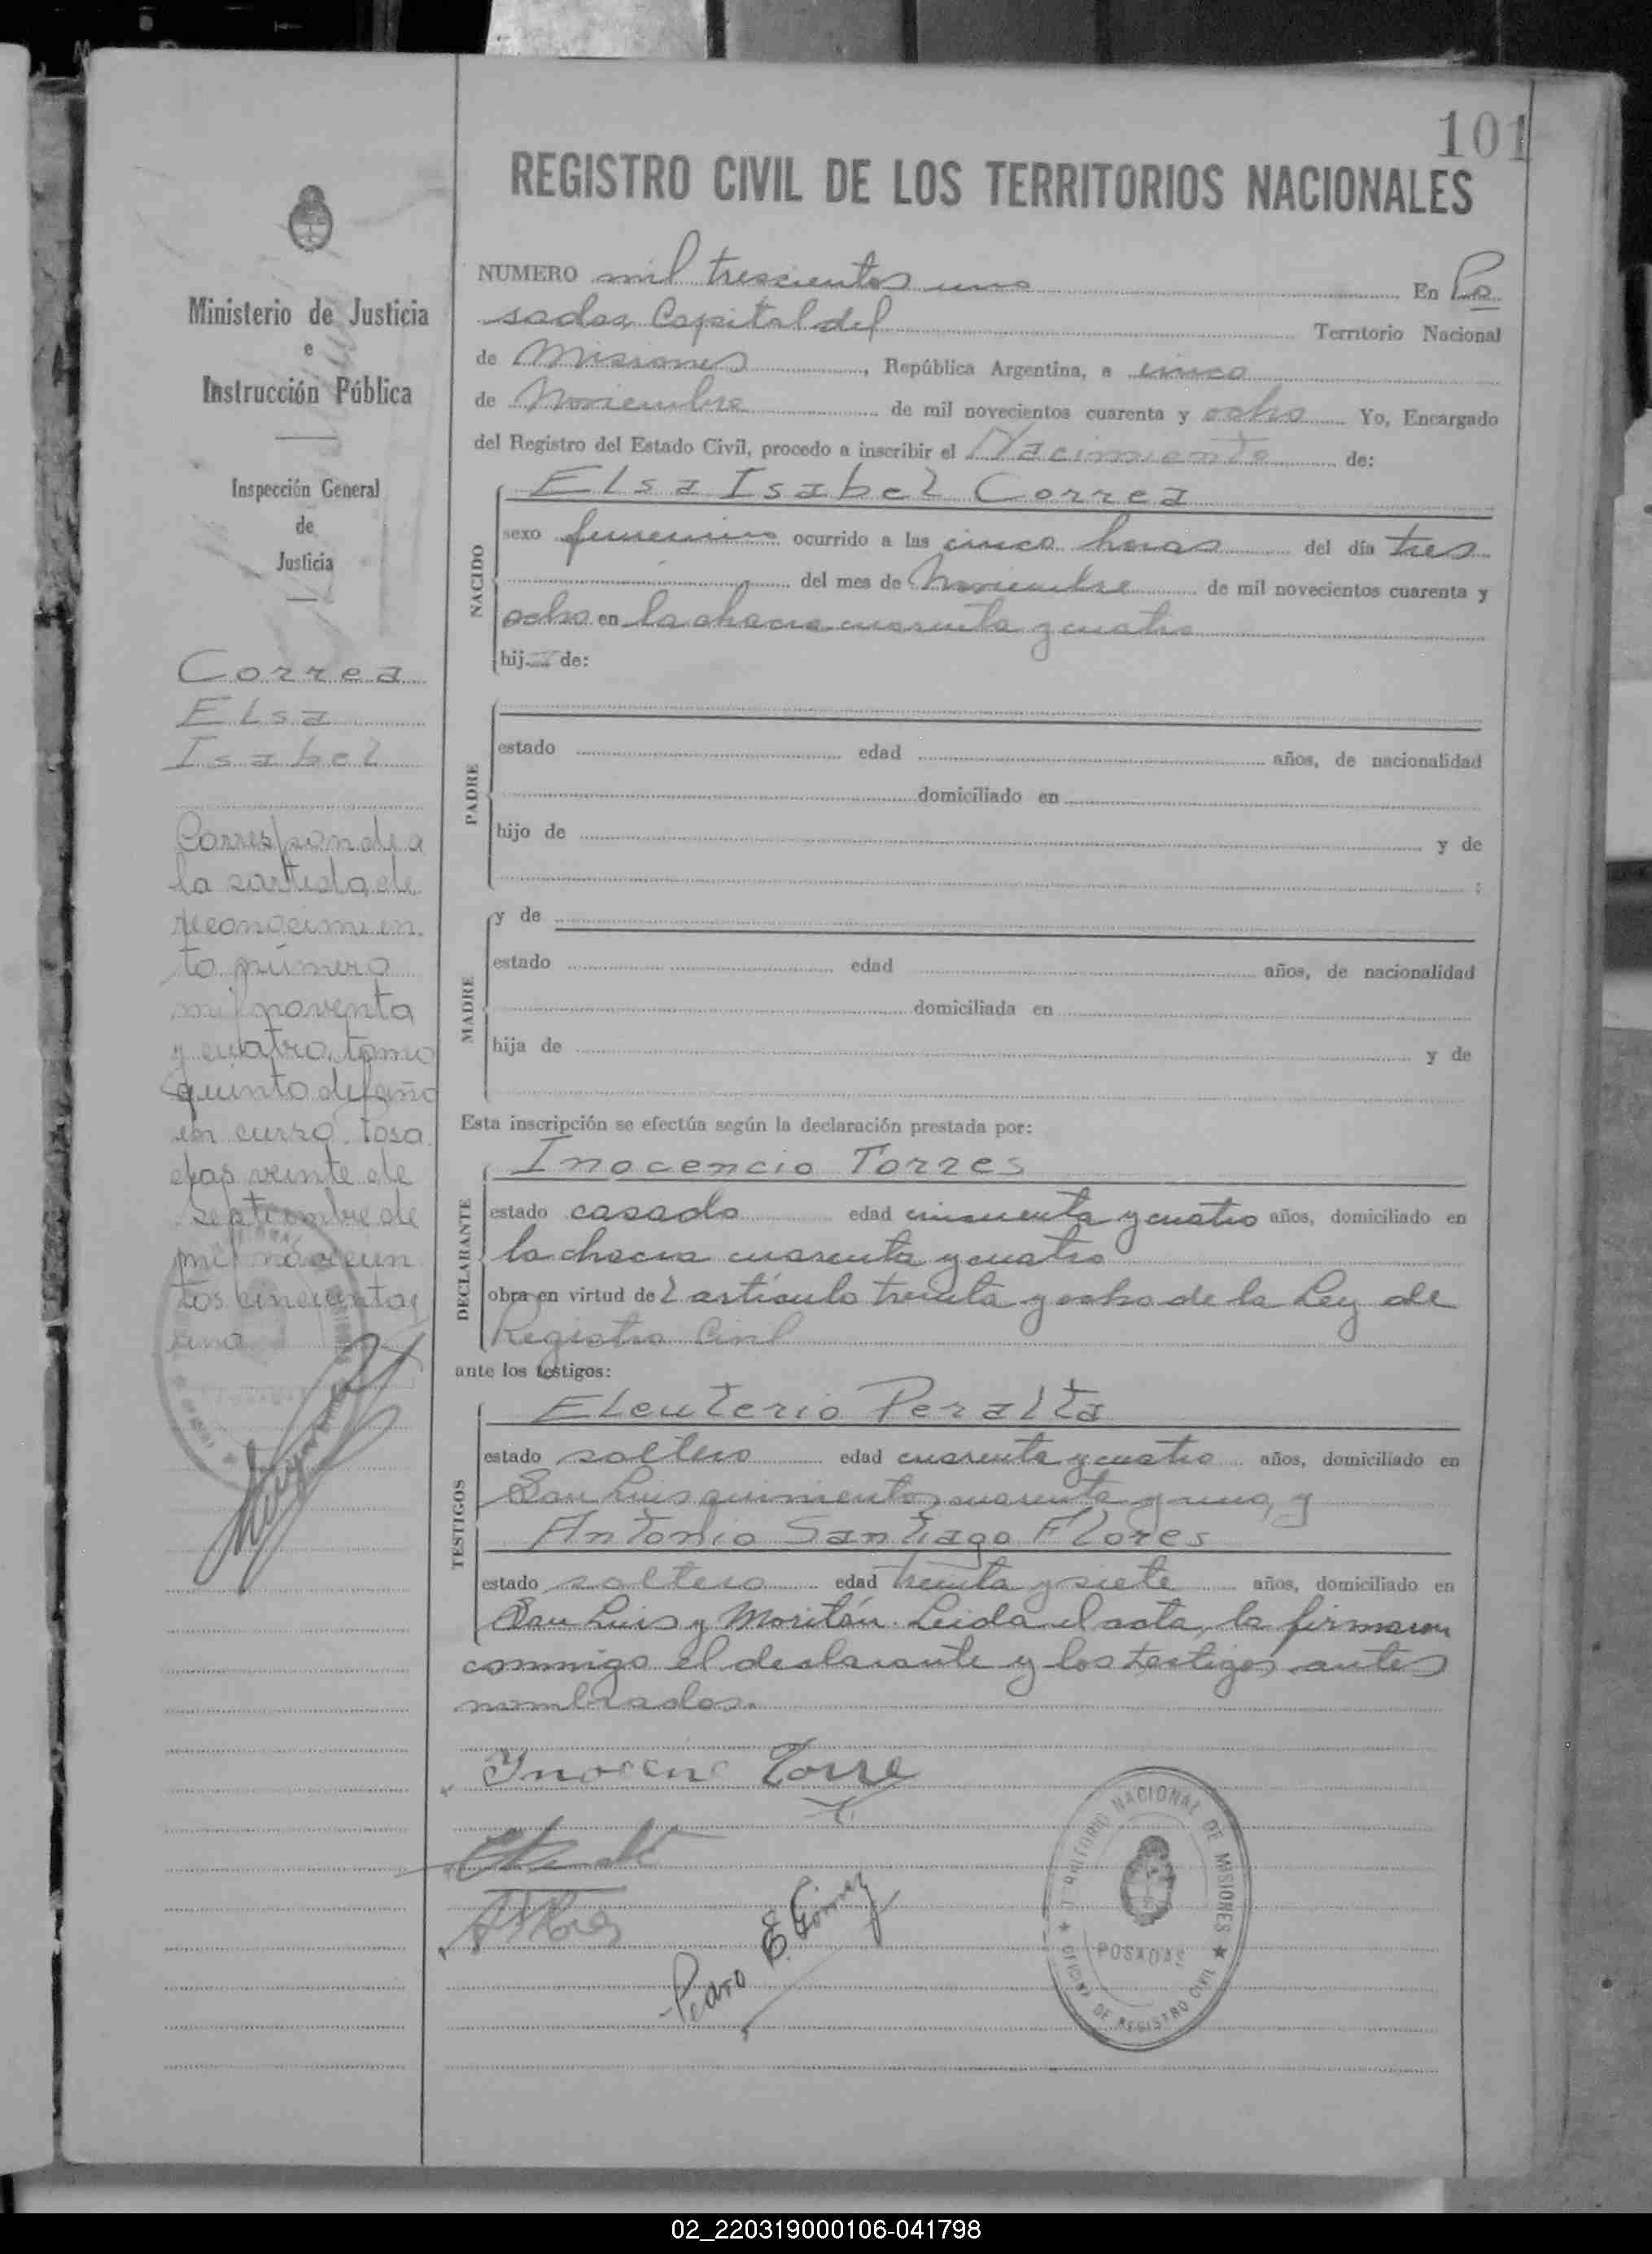 101
REGISTRO CIVIL DE LOS TERRITORIOS NACIONALES
Ministerio de Justicia
e
Instrucción Pública
Inspección General
de
Justicia
Correa
Elsa
Isabel
Corresponde a
la partida de
reconocimien
to número
mil noventa
y cuatro, tomo
quinto del año
en curso. Posa
das veinte de
Septiembre de
mil novecien
tos cincuenta y
uno
NUMERO mil trescientos uno En Po
sadas Capital del Territorio Nacional
de Misiones, República Argentina, a cinco
de Noviembre de mil novecientos cuarenta y ocho Yo, Encargado
del Registro del Estado Civil, procedo a inscribir el Nacimiento de:
Elsa Isabel Correa
NACIDO
sexo femenino ocurrido a las cinco horas del día tres
del mes de Noviembre de mil novecientos cuarenta y
ocho en la chacra cuarenta y cuatro
hij de:
PADRE
estado edad años, de nacionalidad
domiciliado en
hijo de y de
;
MADRE
y de
estado edad años, de nacionalidad
domiciliada en
hija de y de
Esta inscripción se efectúa según la declaración prestada por:
Inocencio Torres
DECLARANTE
estado casado edad cincuenta y cuatro años, domiciliado en
la chacra cuarenta y cuatro
obra en virtud del artículo treinta y ocho de la Ley de
Registro Civil
ante los testigos:
Eleuterio Peralta
TESTIGOS
estado soltero edad cuarenta y cuatro años, domiciliado en
San Luis quinientos cuarenta y uno, y
Antonio Santiago Flores
estado soltero edad treinta y siete años, domiciliado en
San Luis y Moritán. Leida el acta, la firmaron
conmigo el declarante y los testigos antes
nombrados.
Inocenc Torre
A Flores
Pedro E. Gómez
TERRITORIO NACIONAL DE MISIONES
POSADAS
OFICINA DE REGISTRO CIVIL
02_220319000106-041798